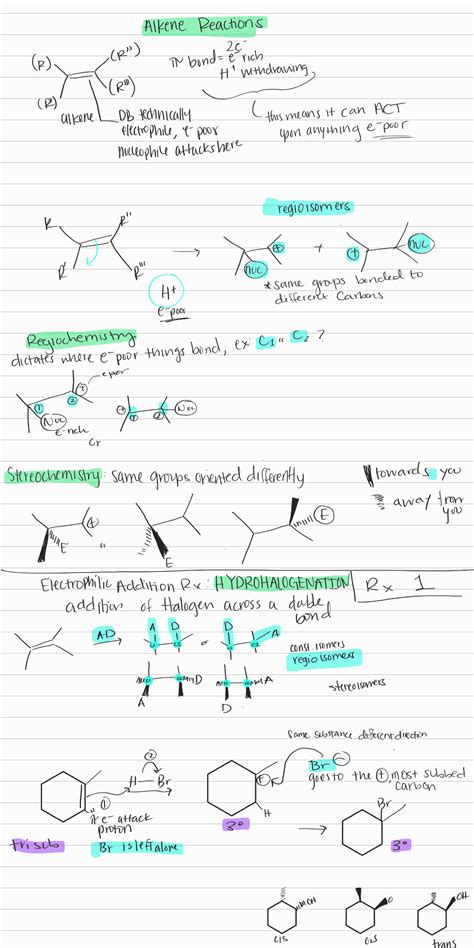 Alkene Reactions
(R)
(R'')
(R)
(R''')
alkene
π bond = 2e⁻ e⁻ rich
H⁺ withdrawing
DB technically
electrophile, e⁻ poor
nucleophile attacks here
this means it can ACT
upon anything e⁻ poor
regioisomers
R
R''
R'
R'''
H⁺
e⁻ poor
+
nuc
+
+
nuc
*same groups bonded to
different carbons
Regiochemistry
dictates where e⁻ poor things bond, ex C₁ or C₂ ?
e poor
+
1
2
Nuc
e⁻ rich
or
+
Nuc
Stereochemistry: same groups oriented differently
towards you
away from
you
E
E
E
Electrophilic Addition Rx: HYDROHALOGENATION
Rx 1
addition of Halogen across a double
bond
A-D
A D
or
D
A
const. isomers
regioisomers
D
A
A
D
stereoisomers
Same substance different direction
Br ⊖
goes to the ⊕, most subbed
carbon
2
H — Br
1
π e⁻ attack
proton
+
H
3°
Br
3°
trisub
Br is left alone
OH
cis
cis
OH
trans